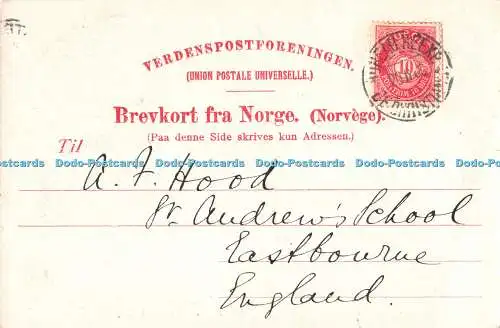 VERDENSPOSTFORENINGEN.
(UNION POSTALE UNIVERSELLE.)
Brevkort fra Norge. (Norvège).
(Paa denne Side skrives kun Adressen.)
Til
Dodo-Postcards Dodo-Postcards Dodo-Postcards Dodo-Postcards Dodo-Postcards
A. F. Hood
St Andrew's School
Eastbourne
England.
10